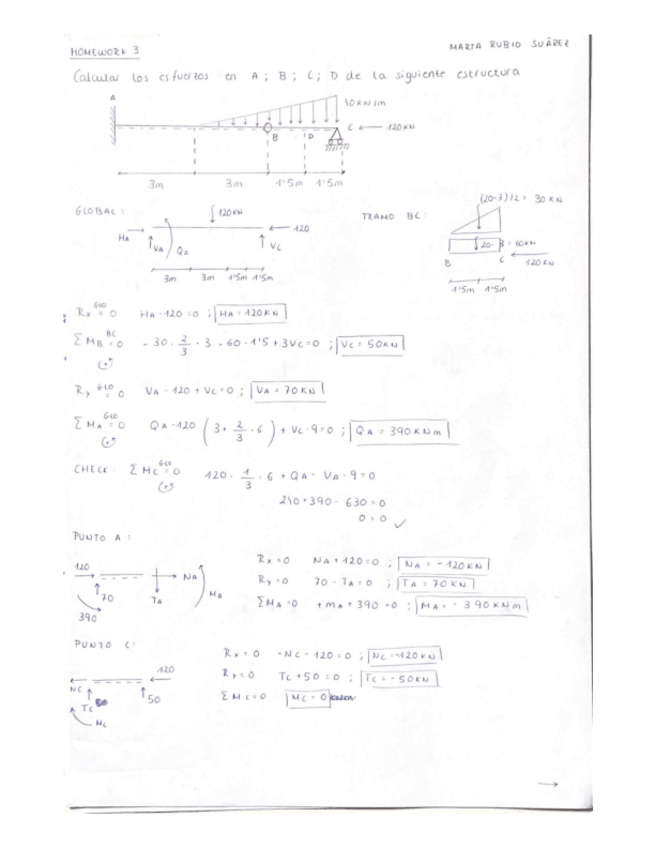 HOMEWORK 3
MARTA RUBIO SUÁREZ
Calcular los esfuerzos en A; B; C; D de la siguiente estructura
A
10 KN/m
B
D
C
120KN
3m 3m 1'5m 1'5m
GLOBAL:
120KN
120
HA
VA
QA
VC
3m 3m 1'5m 1'5m
TRAMO BC:
(20·3)/2 = 30 KN
= 60KN
B
C
120KN
1'5m 1'5m
Rx GLO = 0 HA - 120 = 0 ; HA = 120KN
Σ MB BC = 0 - 30 · 2/3 · 3 - 60 · 1'5 + 3VC = 0 ; VC = 50KN
Ry GLO = 0 VA - 120 + VC = 0 ; VA = 70 KN
Σ MA GLO = 0 QA - 120 (3 + 2/3 · 6) + VC · 9 = 0 ; QA = 390 KNm
CHECK: Σ MC GLO = 0 120 · 1/3 · 6 + QA - VA · 9 = 0
240 + 390 - 630 = 0
0 = 0 ✓
PUNTO A:
120
70
390
TA
NA
MA
Rx = 0 NA + 120 = 0 ; NA = -120KN
Ry = 0 70 - TA = 0 ; TA = 70 KN
ΣMA = 0 + MA + 390 = 0 ; MA = - 390 KNm
PUNTO C:
120
NC
TC
50
MC
Rx = 0 -NC - 120 = 0 ; NC = -120 KN
Ry = 0 TC + 50 = 0 ; TC = - 50KN
Σ MC = 0 MC = 0
→